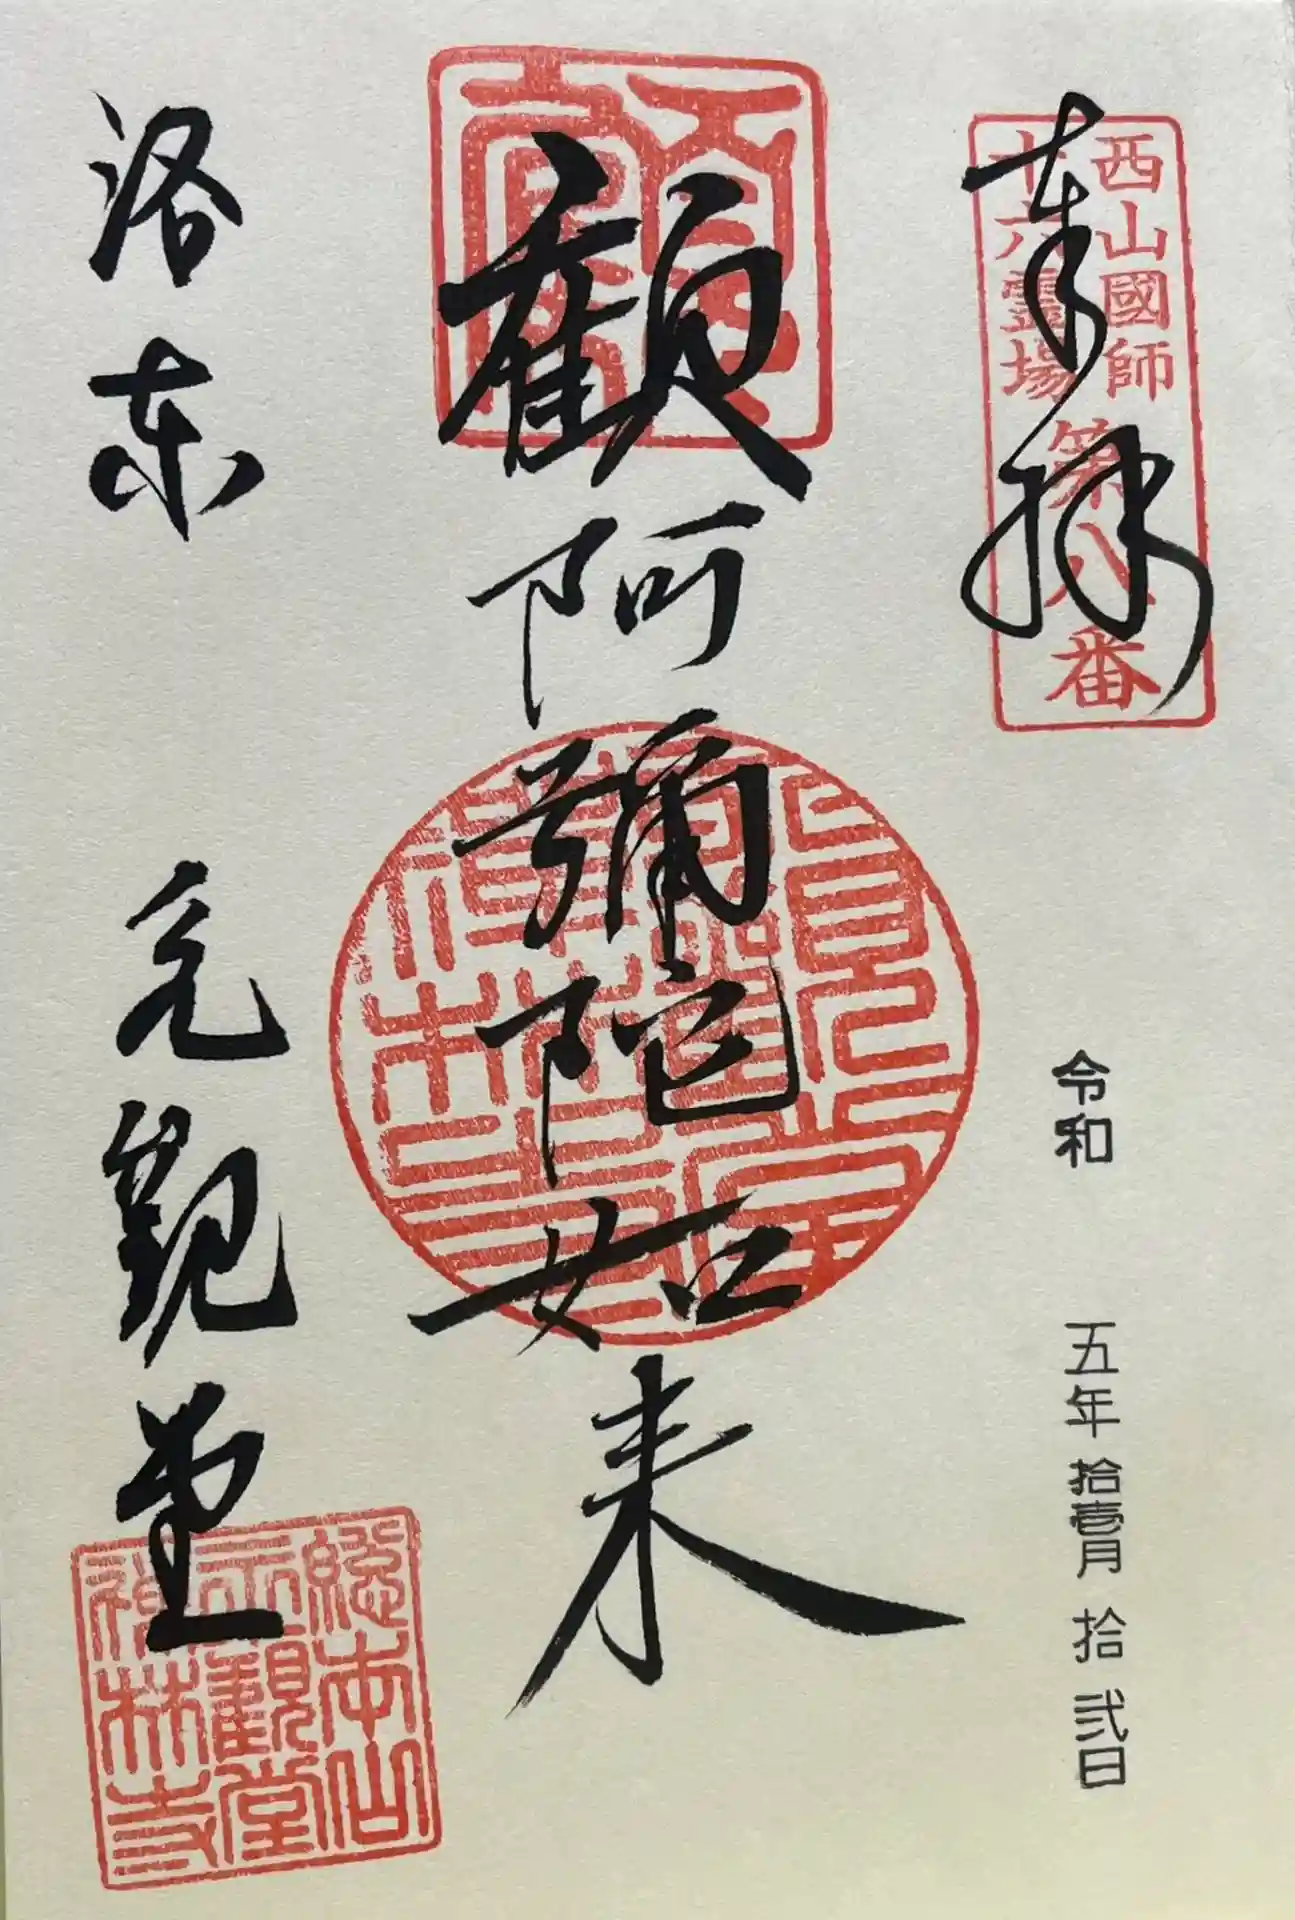 奉拝
西山國師
十六霊場
第八番
令和 五年 拾壱月 拾弐日
顧阿彌陀如来
洛東 元観堂
総本山
永観堂
禅林寺